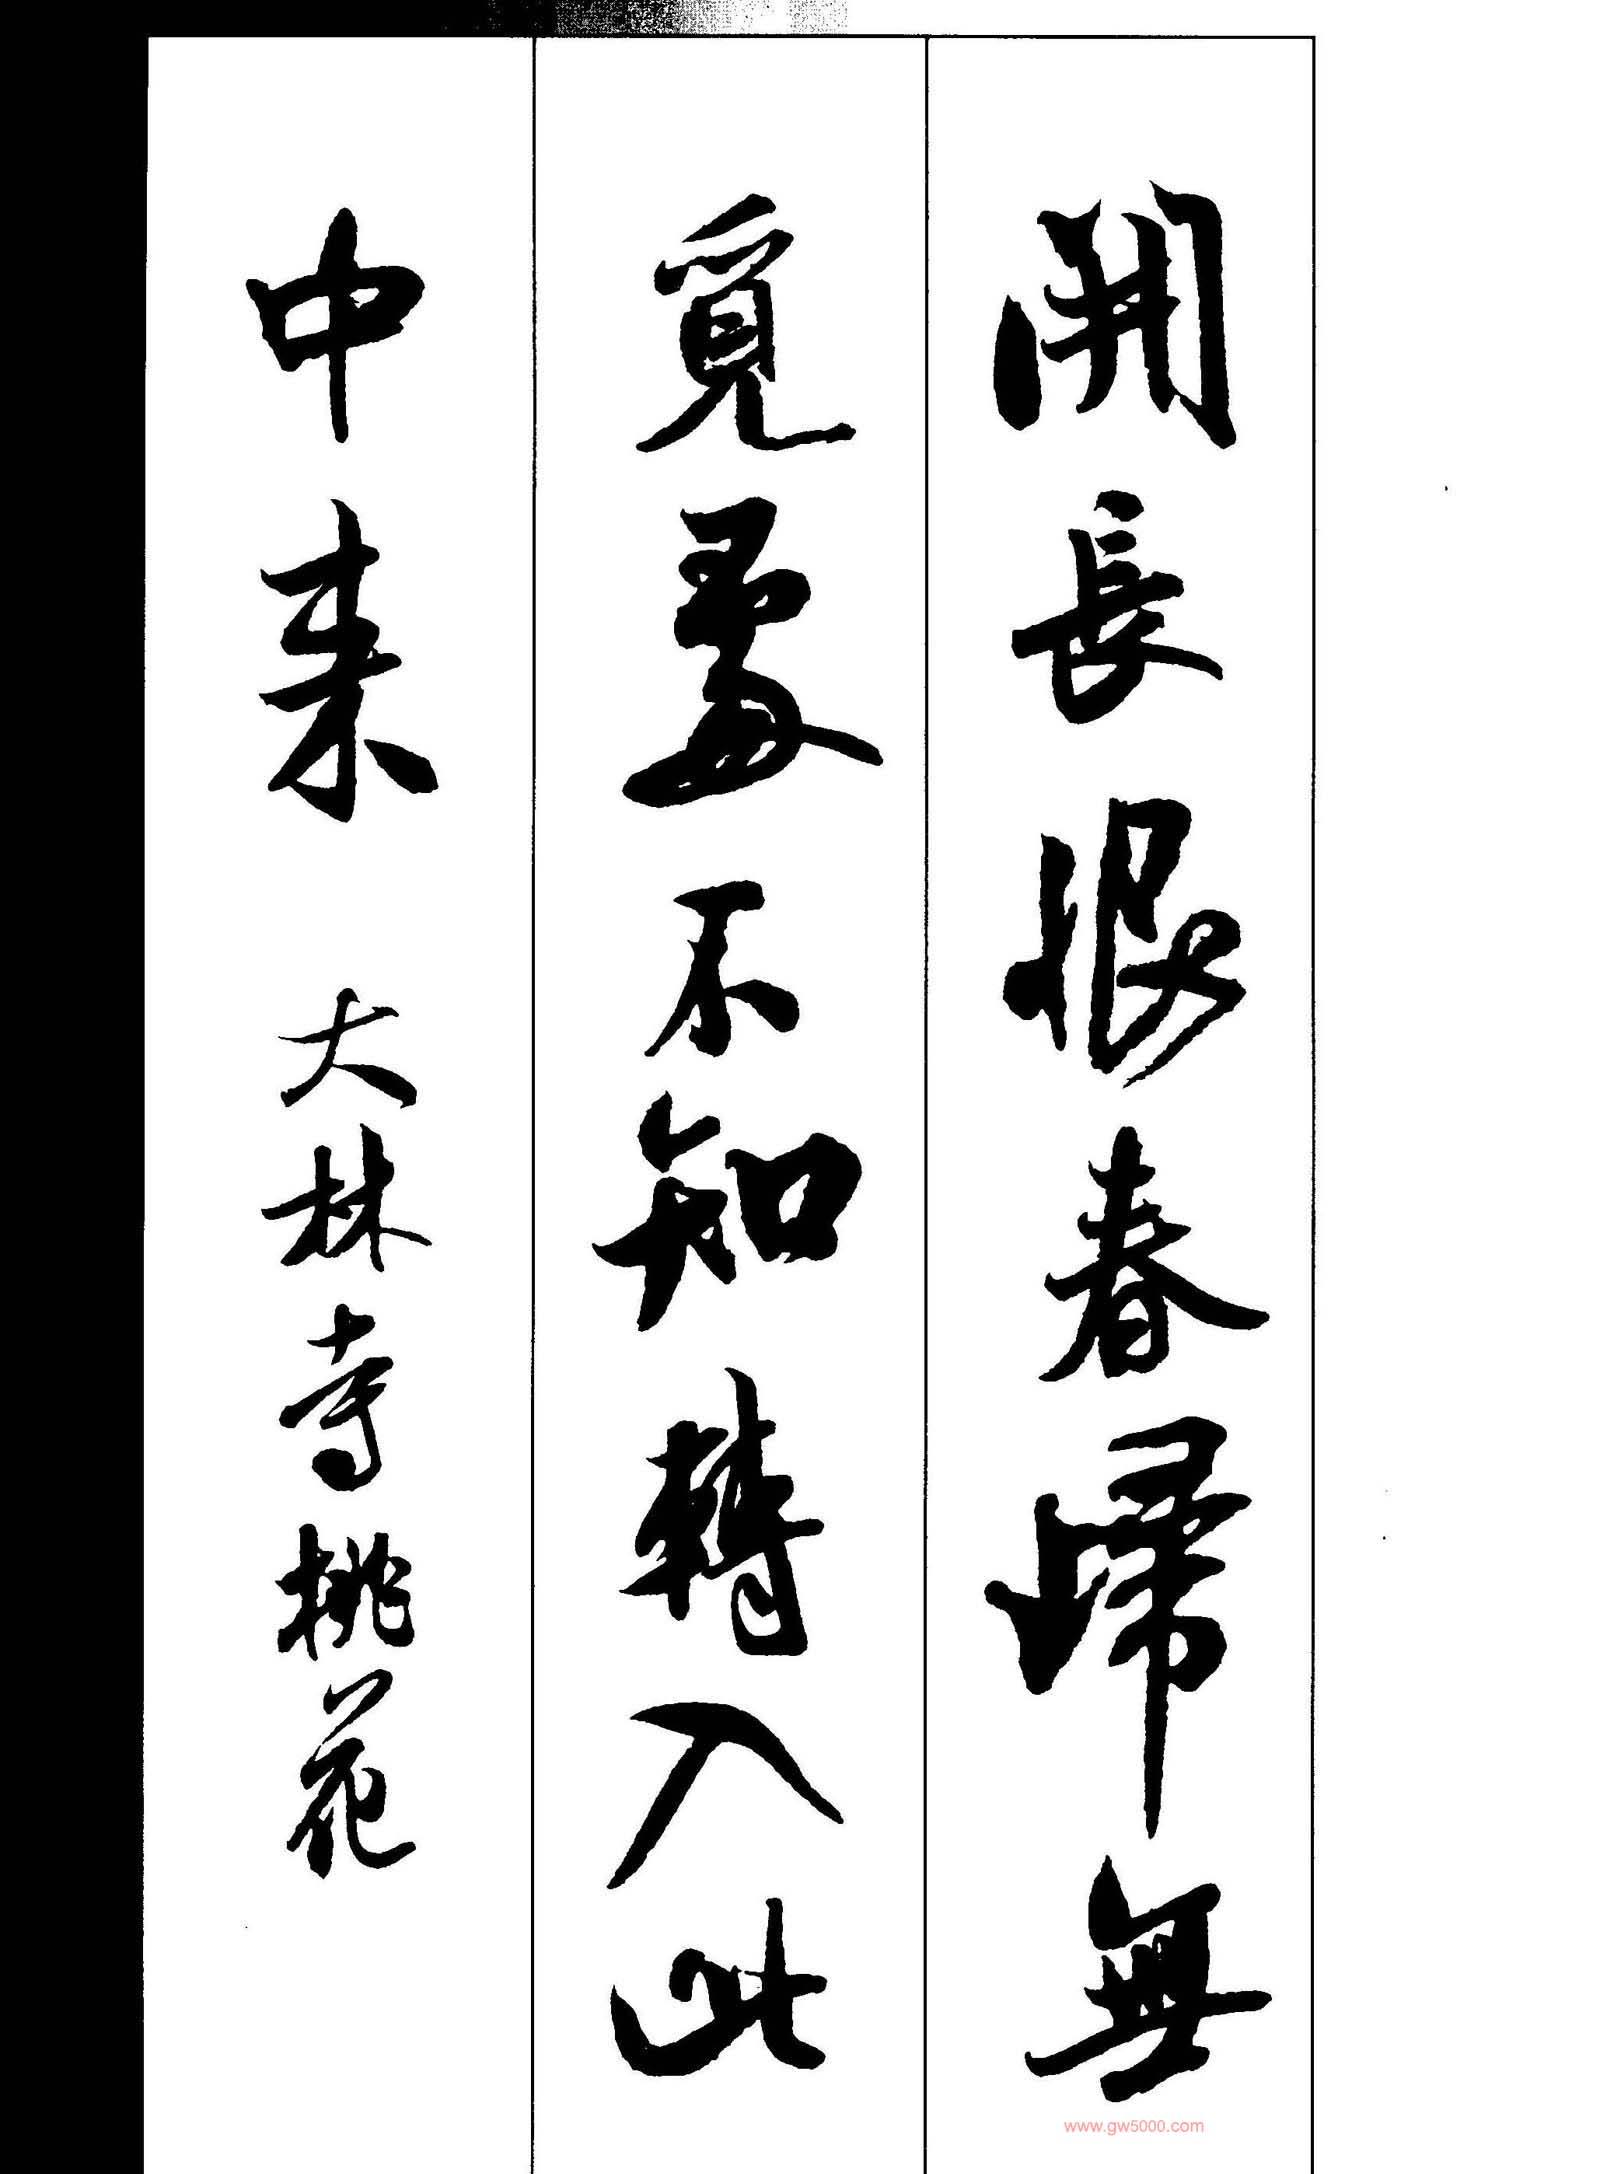 開長恨春歸無
覓處不知轉入此
中来 大林寺桃花
www.gw5000.com